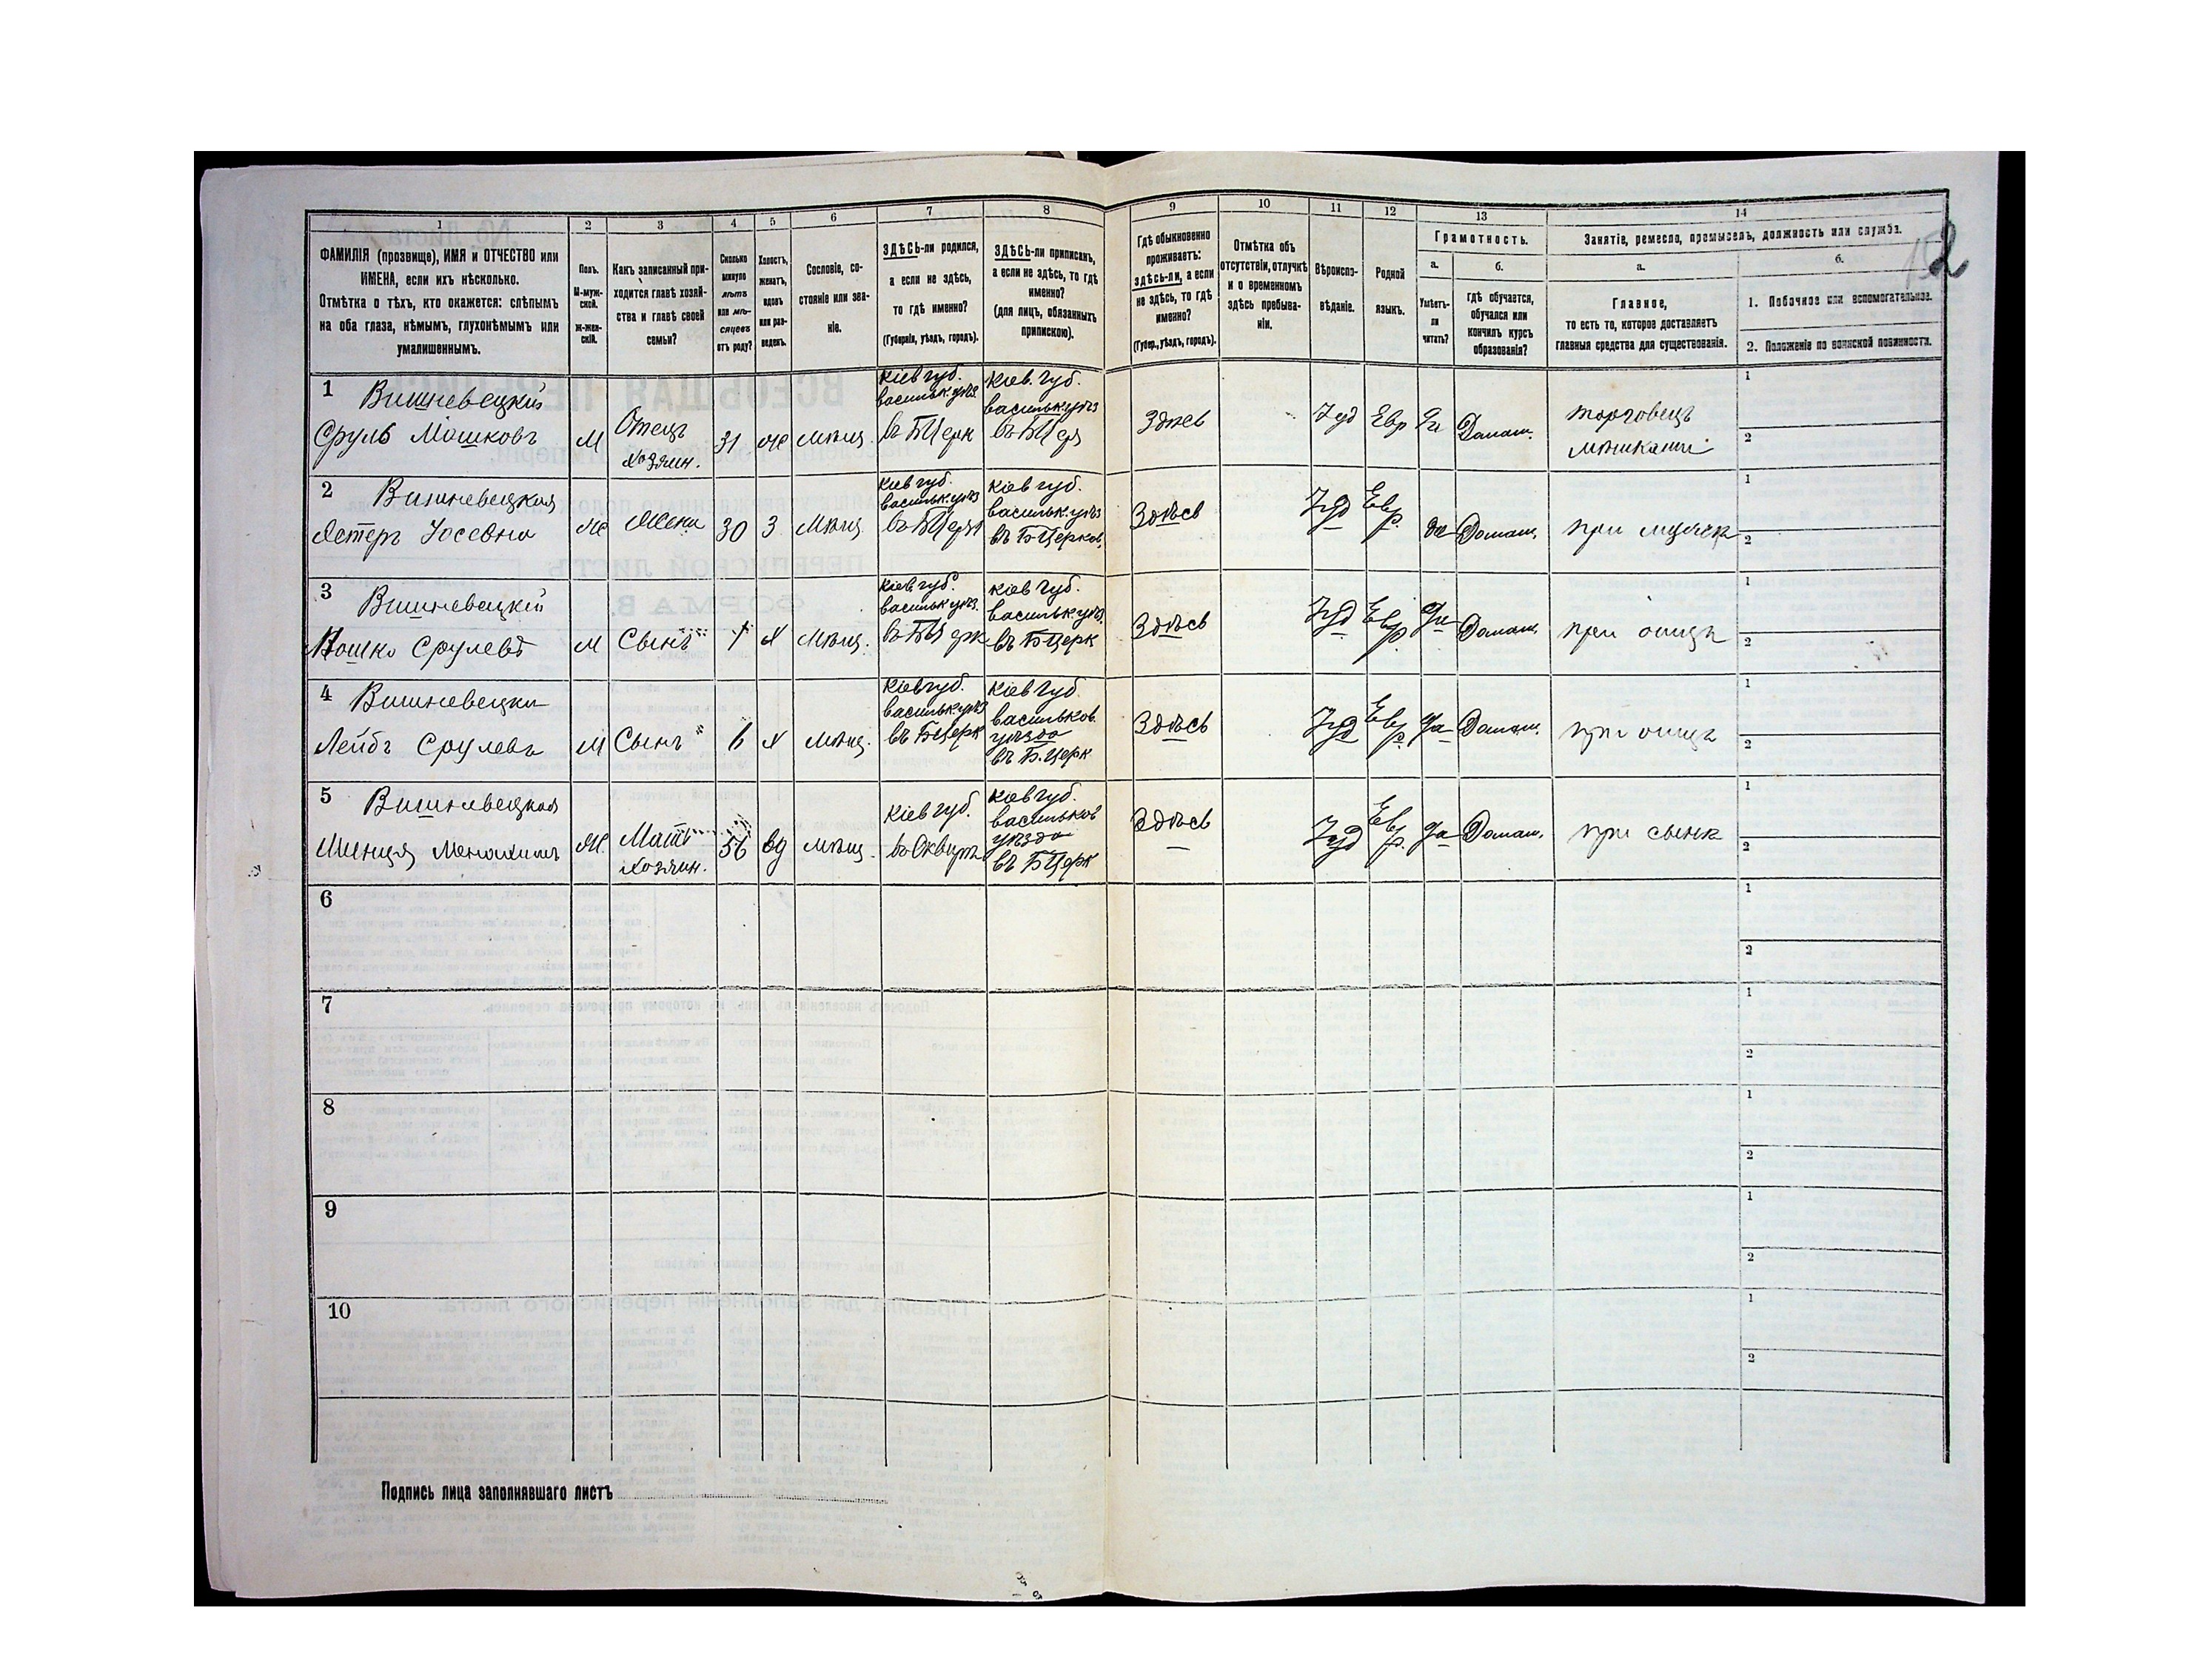 1 2 3 4 5 6 7 8 9 10 11 12 13 14
ФАМИЛІЯ (прозвище), ИМЯ и ОТЧЕСТВО или
ИМЕНА, если ихъ нѣсколько.
Отмѣтка о тѣхъ, кто окажется: слѣпымъ
на оба глаза, нѣмымъ, глухонѣмымъ или
умалишеннымъ.
Полъ.
М-муж-
ской.
ж-жен-
скій.
Какъ записанный при-
ходится главѣ хозяй-
ства и главѣ своей
семьи?
Сколько
минуло
лѣтъ
или мѣ-
сяцевъ
отъ роду?
Холостъ,
женатъ,
вдовъ
или раз-
веденъ.
Сословіе, со-
стояніе или зва-
ніе.
ЗДѢСЬ-ли родился,
а если не здѣсь,
то гдѣ именно?
(Губернія, уѣздъ, городъ).
ЗДѢСЬ-ли приписанъ,
а если не здѣсь, то гдѣ
именно?
(для лицъ, обязанныхъ
припискою).
Гдѣ обыкновенно
проживаетъ:
здѣсь-ли, а если
не здѣсь, то гдѣ
именно?
(Губер., уѣздъ, городъ).
Отмѣтка объ
отсутствіи, отлучкѣ
и о временномъ
здѣсь пребыва-
ніи.
Вѣроиспо-
вѣданіе.
Родной
языкъ.
Грамотность.
а.
Умѣетъ-
ли
читать?
б.
гдѣ обучается,
обучался или
кончилъ курсъ
образованія?
Занятіе, ремесло, промыселъ, должность или служба.
а.
Главное,
то есть то, которое доставляетъ
главныя средства для существованія.
б.
1. Побочное или вспомогательное.
2. Положеніе по воинской повинности.
2
1 Вишневецкій
Сруль Мошковъ
М
Отецъ
хозяин.
31
же
мѣщ
Кіев губ.
васильк. уѣз
въ БЦерк
Кіев. губ.
васильк уѣз
въ БЦер
Здѣсь
Іуд
Евр
Да
Домаш.
торговецъ
1
2
2 Вишневецкая
Естеръ Іосевна
Ж
Жена
30
З
Мѣщ
Кіев губ.
васильк. уѣз
Кіев губ.
васильк. уѣз
въ БЦерков.
Здѣсь
Іуд
Евр.
да
Домаш.
при мужѣ
1
2
3 Вишневецкій
Мошко Срулевъ
М
Сынъ
х
Мѣщ.
Кіев губ
васильк уѣз.
въ БЦерк
Кіев губ.
васильк. уѣз.
въ БЦерк
Здѣсь
Іуд
Евр.
Да
Домаш.
при отцѣ
1
2
4 Вишневецки
Лейбъ Срулевъ
М
Сынъ
6
х
мѣщ.
Кіев губ.
васильк. уѣз
въ БЦерк
Кіев губ
васильков.
уѣзда
въ Б.Церк
Здѣсь
Іуд
Евр.
Да
Домаш.
при отцѣ
1
2
5 Вишневецкая
Ж
Мать
хозяин.
56
вд
мѣщ.
Кіев губ.
въ Сквирѣ
Кіев губ.
васильков
уѣзда
въ БЦерк
Здѣсь
Іуд
Евр.
Да
Домаш.
при сынѣ
1
2
6
1
2
7
1
2
8
1
2
9
1
2
10
1
2
Подпись лица заполнявшаго листъ